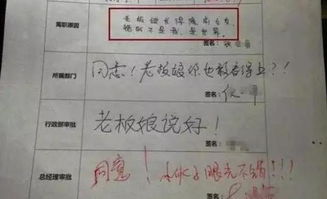 离职原因
老板娘长得漂亮
错的不是我，是世界。
签名：
所属部门
同志！老板娘你也敢看上？！
签名：
行政部审批
老板娘说好！
签名：
总经理审批
同意！小伙子眼光不错!!!
签名：